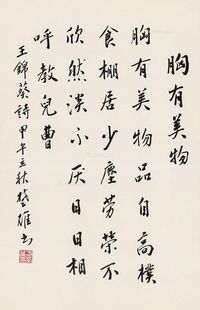 胸有美物
胸有美物品自高樸
食棚居少塵勞榮不
欣然淡不厌日日相
呼教兒曹
王錦葵詩甲午立秋楚雄书